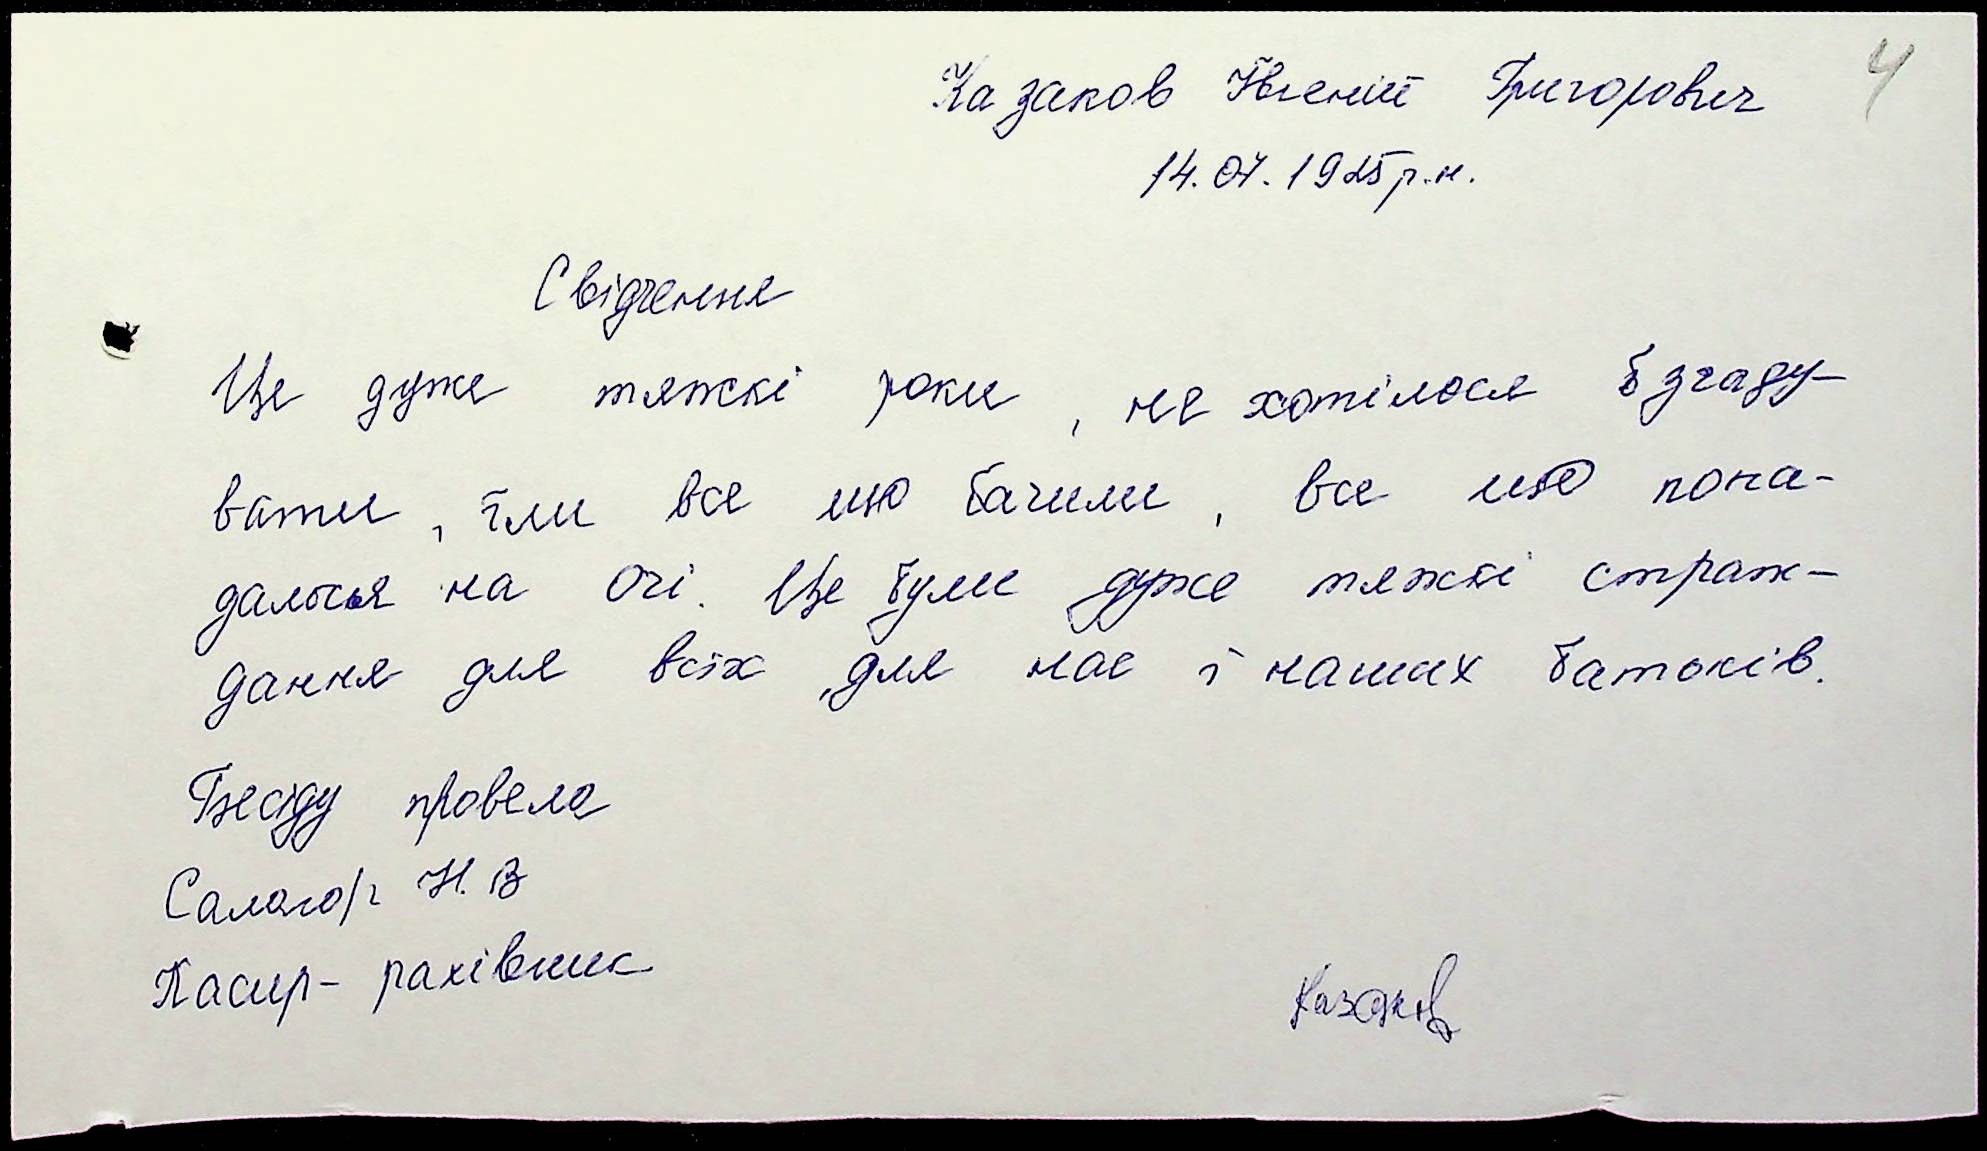 4
Казаков Євгеній Григорович
14.07.1925 р.н.
Свідчення
Це дуже тяжкі роки, не хотілося б згаду-
вати, їли все що бачили, все що попа-
далося на очі. Це були дуже тяжкі страж-
дання для всіх, для нас і наших батьків.
Бесіду провела
Н. В
Касир - рахівник
Казаков